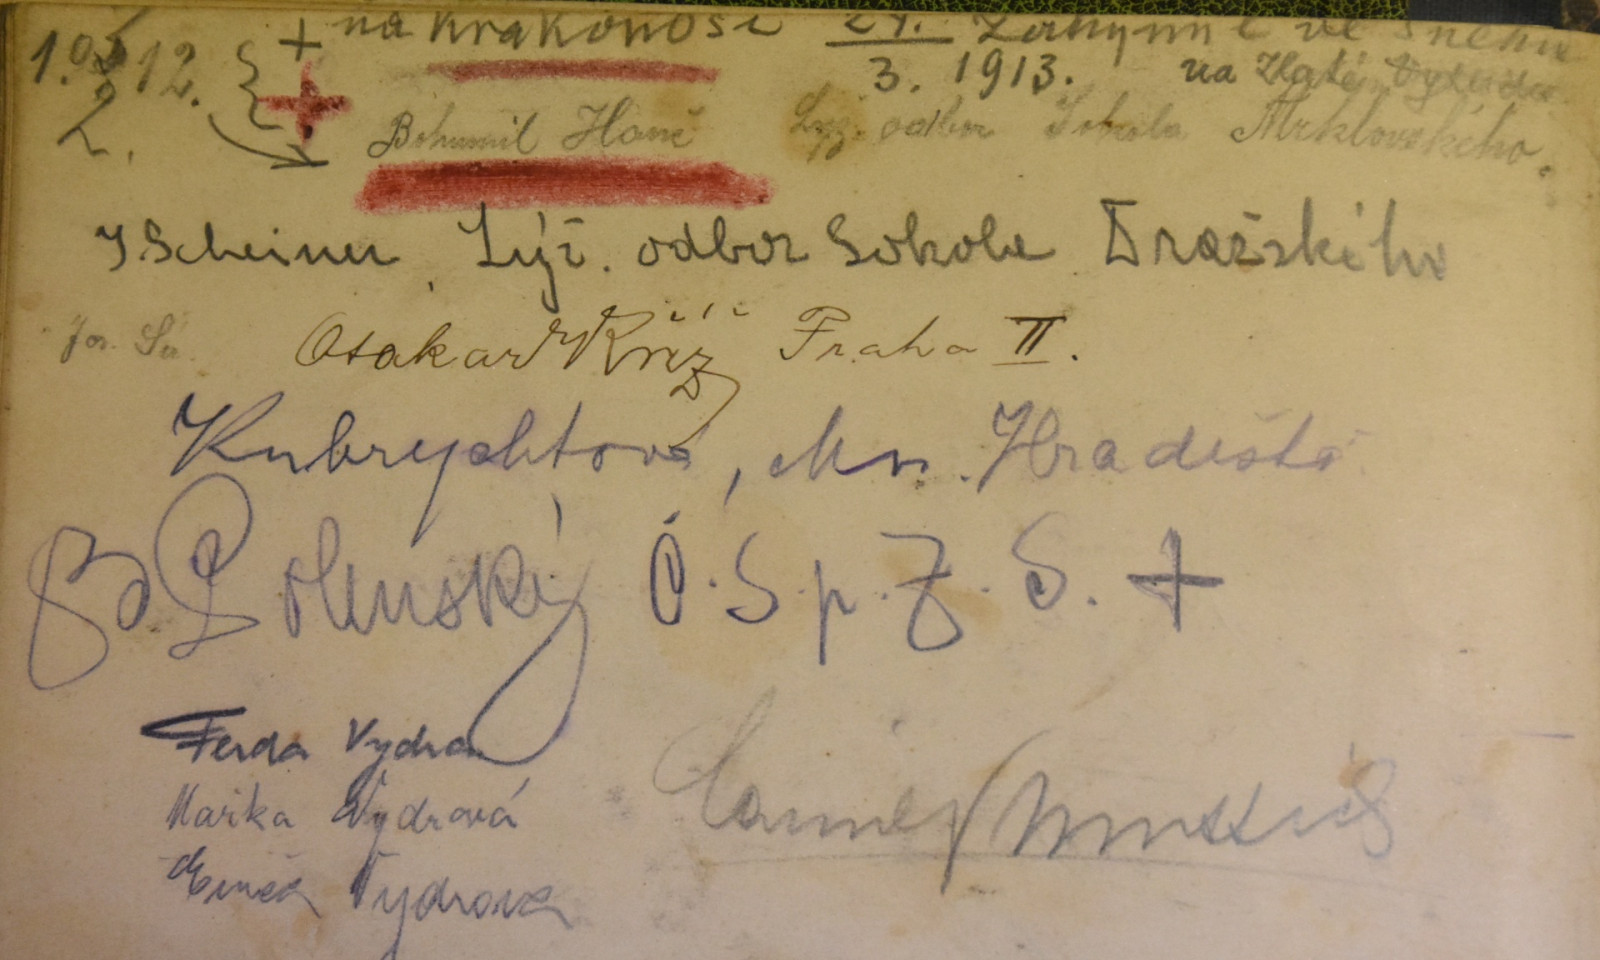 na Krakonoši 24. Zahynul ve sněhu
1912. 3. 1913. na Zlaté
2. Bohumil Hanč Lyž. odbor Sokola Mrklovského.
J Scheiner Lyž. odbor Sokola Pražského
Jos. Otakar Kříž Praha II.
Kubrychtová, Mn. Hradiště
Bo Polenský Č. Sp. Z. S. +
Ferda Vydra
Mařka Vydrová
Vydrová